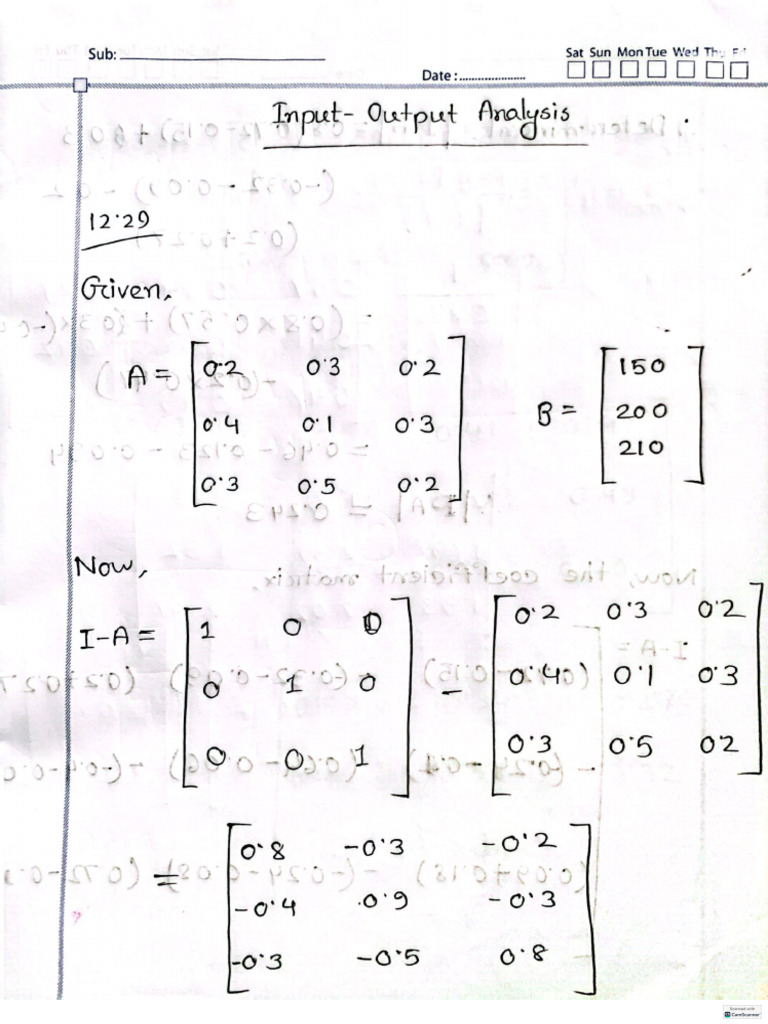 Sub:
Sat Sun Mon Tue Wed Thu Fri
Date :
Input-Output Analysis
12.29
Given,
A = [ 0.2 0.3 0.2
0.4 0.1 0.3
0.3 0.5 0.2 ]
B = [ 150
200
210 ]
Now,
I-A = [ 1 0 0
0 1 0
0 0 1 ] - [ 0.2 0.3 0.2
0.4 0.1 0.3
0.3 0.5 0.2 ]
= [ 0.8 -0.3 -0.2
-0.4 0.9 -0.3
-0.3 -0.5 0.8 ]
Scanned with
CamScanner